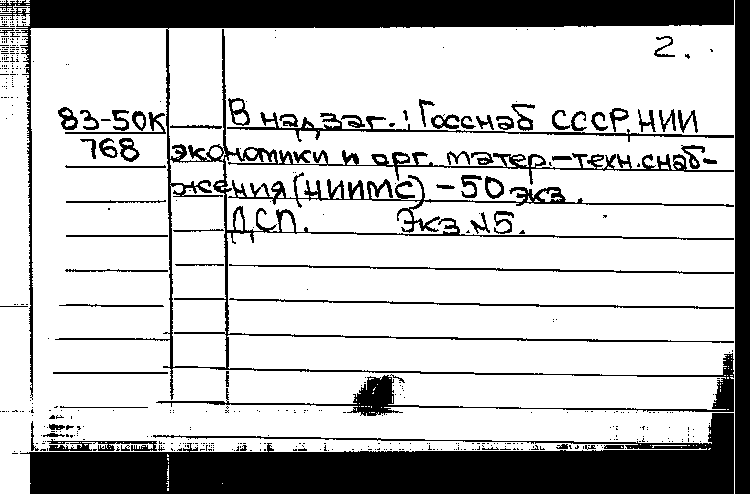 2.
83-50К В надзаг.: Госснаб СССР, НИИ
768 экономики и орг. матер.-техн. снаб-
жения (НИИМС) - 50 экз.
ДСП. Экз. №5.